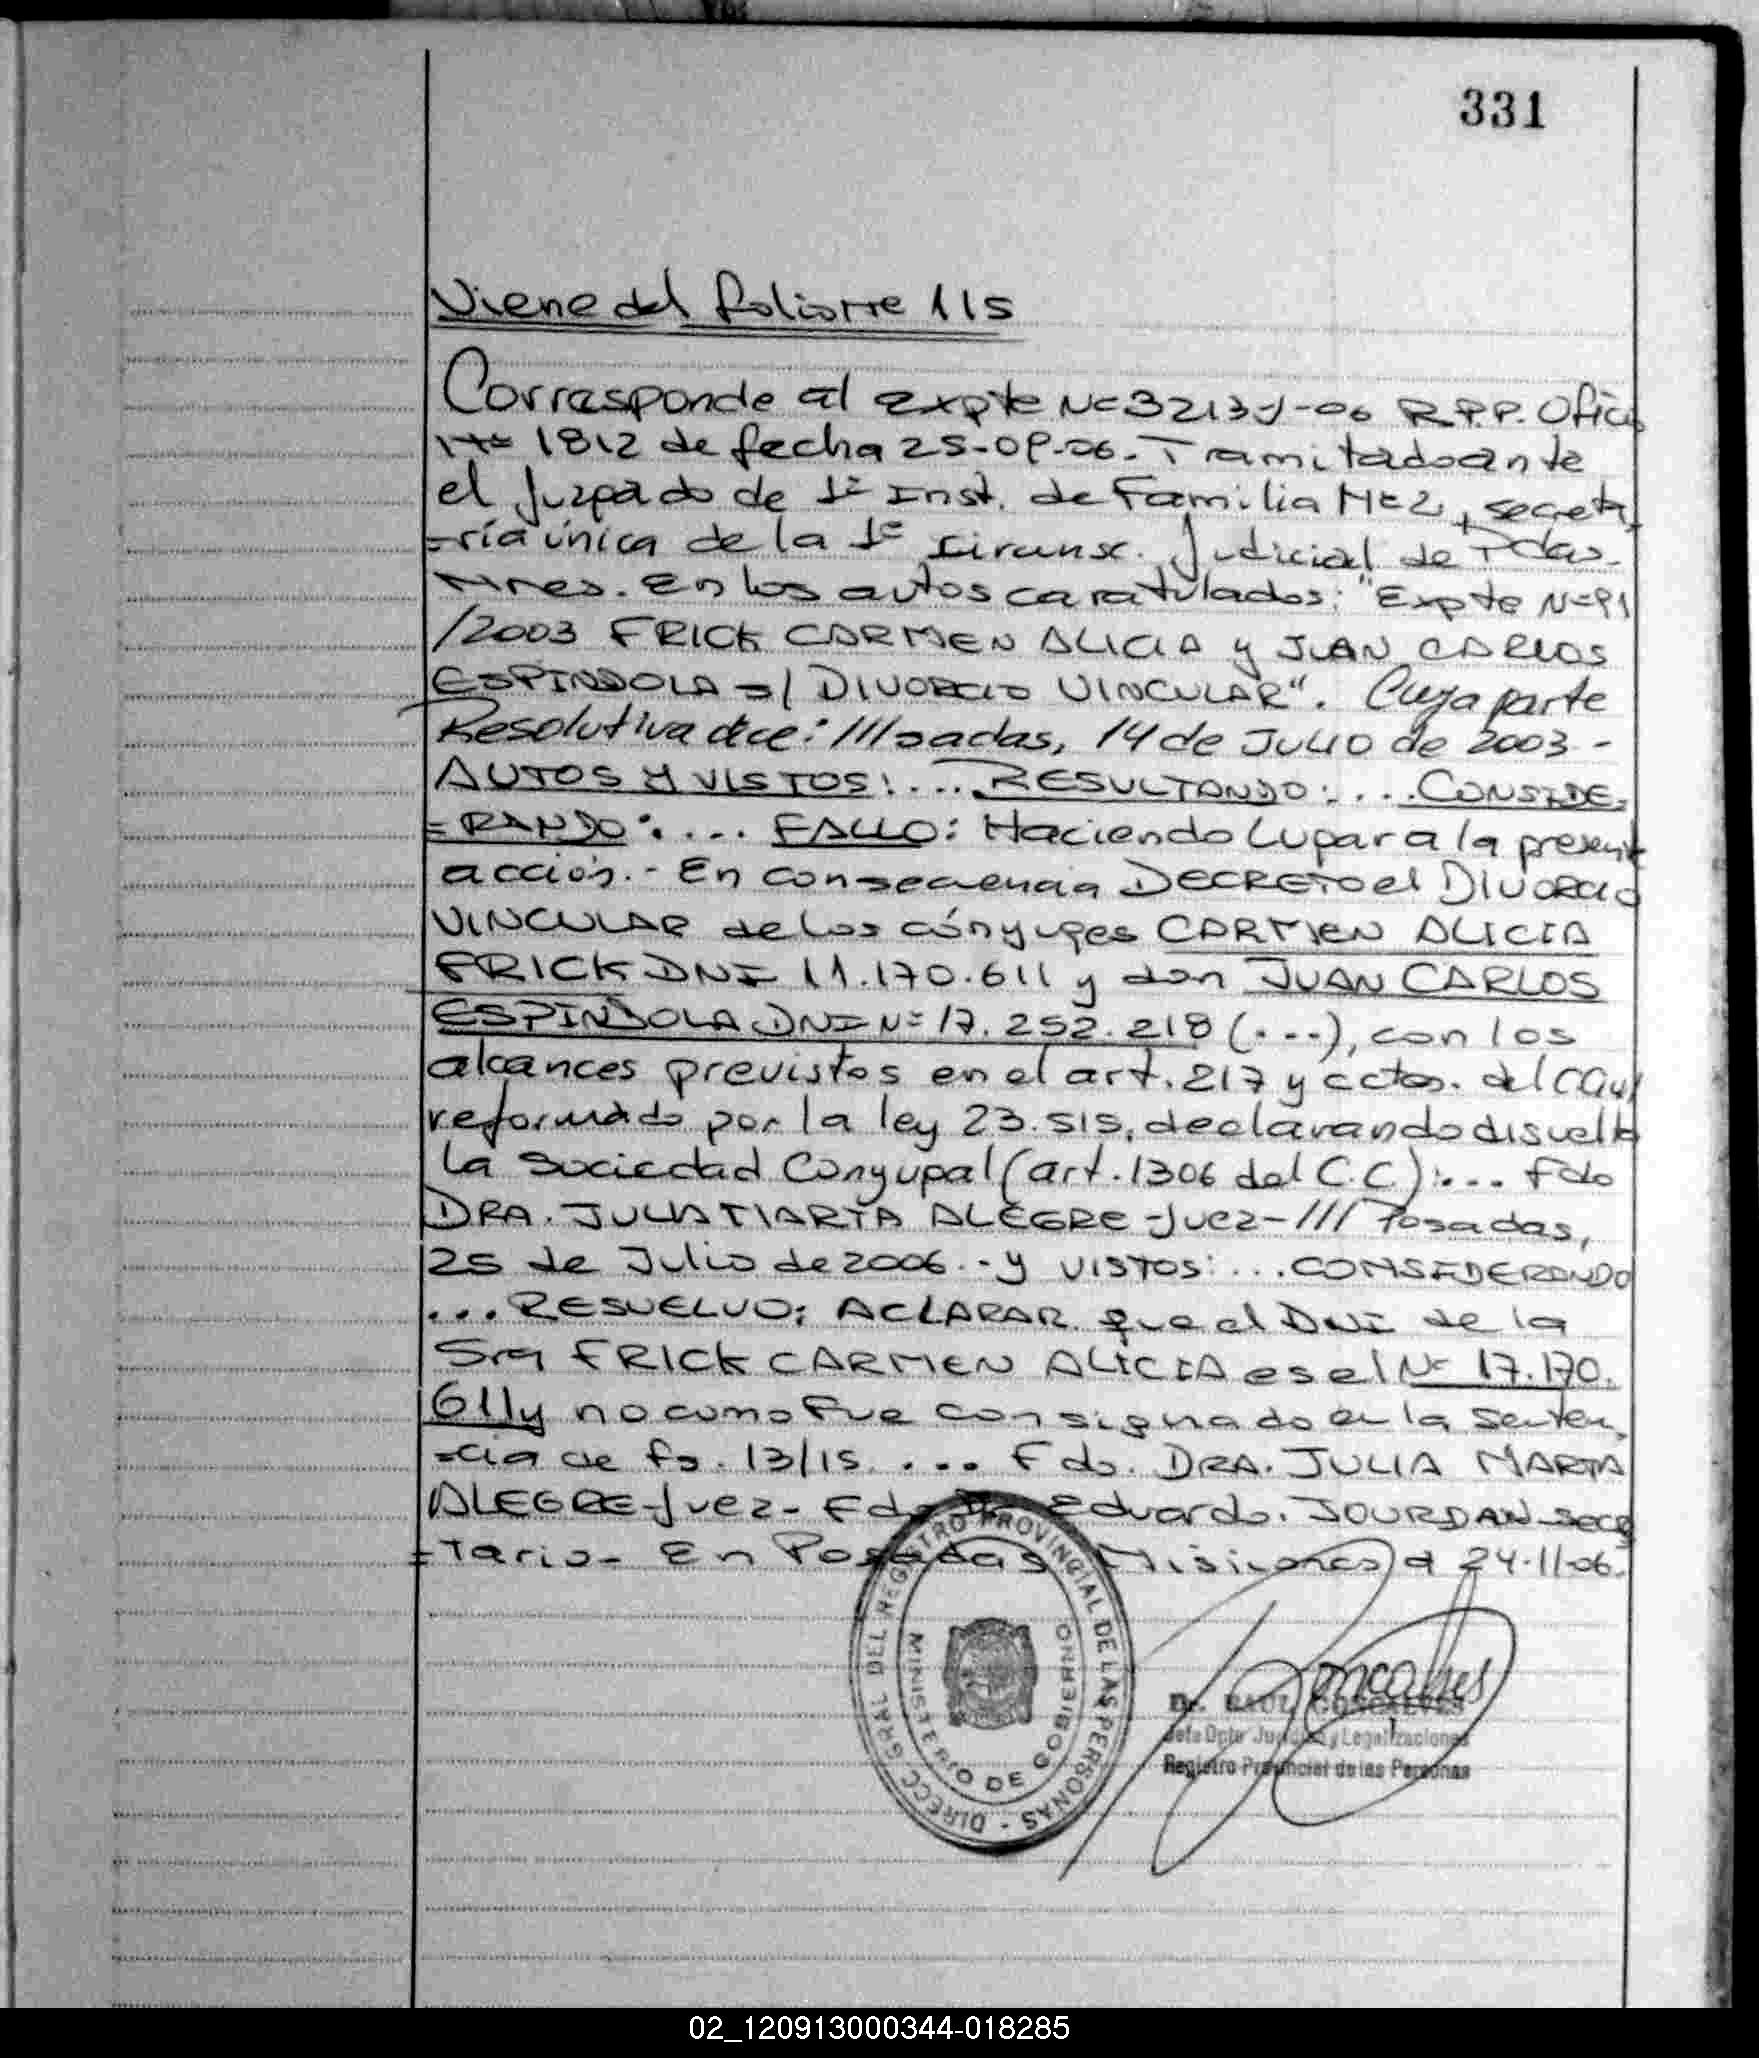 331
Viene del folio 115
Corresponde al expte Nº 3213 -06 R.P.P. Oficio
Nº 1812 de fecha 25-09-06. Tramitado ante
el Juzgado de 1º Inst. de Familia Nº 2, secreta
=ría única de la 1º Circunsc. Judicial de Pdas.
Mnes. En los autos caratulados: "Expte Nº 91
/2003 FRICK CARMEN ALICIA y JUAN CARLOS
ESPINDOLA s/ DIVORCIO VINCULAR". Cuya parte
Resolutiva dice: ///sadas, 14 de JULIO de 2003.-
AUTOS Y VISTOS:... RESULTANDO:... CONSIDE=
=RANDO:... FALLO: Haciendo Lugar a la presente
acción.- En consecuencia DECRETO el DIVORCIO
VINCULAR de los cónyuges CARMEN ALICIA
FRICK DNI 11.170.611 y don JUAN CARLOS
ESPINDOLA DNI Nº 17.252.218 (...), con los
alcances previstos en el art. 217 y cctes. del C.Civil
reformado por la ley 23.515, declarando disuelta
la Sociedad Conyugal (art. 1306 del C.C):... Fdo
DRA. JULIA MARTA ALEGRE -Juez- /// Posadas,
25 de Julio de 2006.- y VISTOS:... CONSIDERANDO
... RESUELVO: ACLARAR que el DNI de la
Sra FRICK CARMEN ALICIA es el Nº 17.170.
611 y no como fue consignado en la Senten
=cia de fs. 13/15.... Fdo. DRA. JULIA MARTA
ALEGRE -Juez- Fdo Dr Eduardo. JOURDAN -Secre
=tario- En Posadas Misiones a 24-11-06.
DIRECC. GRAL. DEL REGISTRO PROVINCIAL DE LAS PERSONAS -
MINISTERIO DE GOBIERNO
Dr. RAUL GONCALVES
Jefe Dpto Judicial y Legalizaciones
Registro Provincial de las Personas
02_120913000344-018285